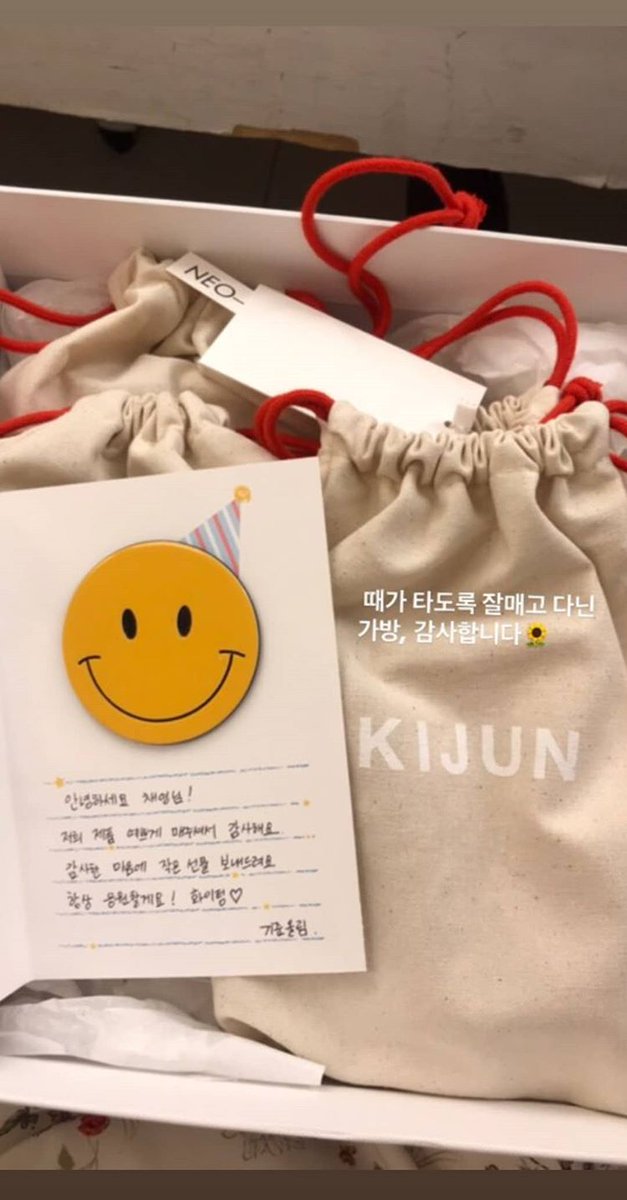 NEO–
때가 타도록 잘매고 다닌
가방, 감사합니다🌻
KIJUN
안녕하세요 채영님!
저희 제품 예쁘게 매주셔서 감사해요.
감사한 마음에 작은 선물 보내드려요
항상 응원할게요! 화이팅♡
기준올림.